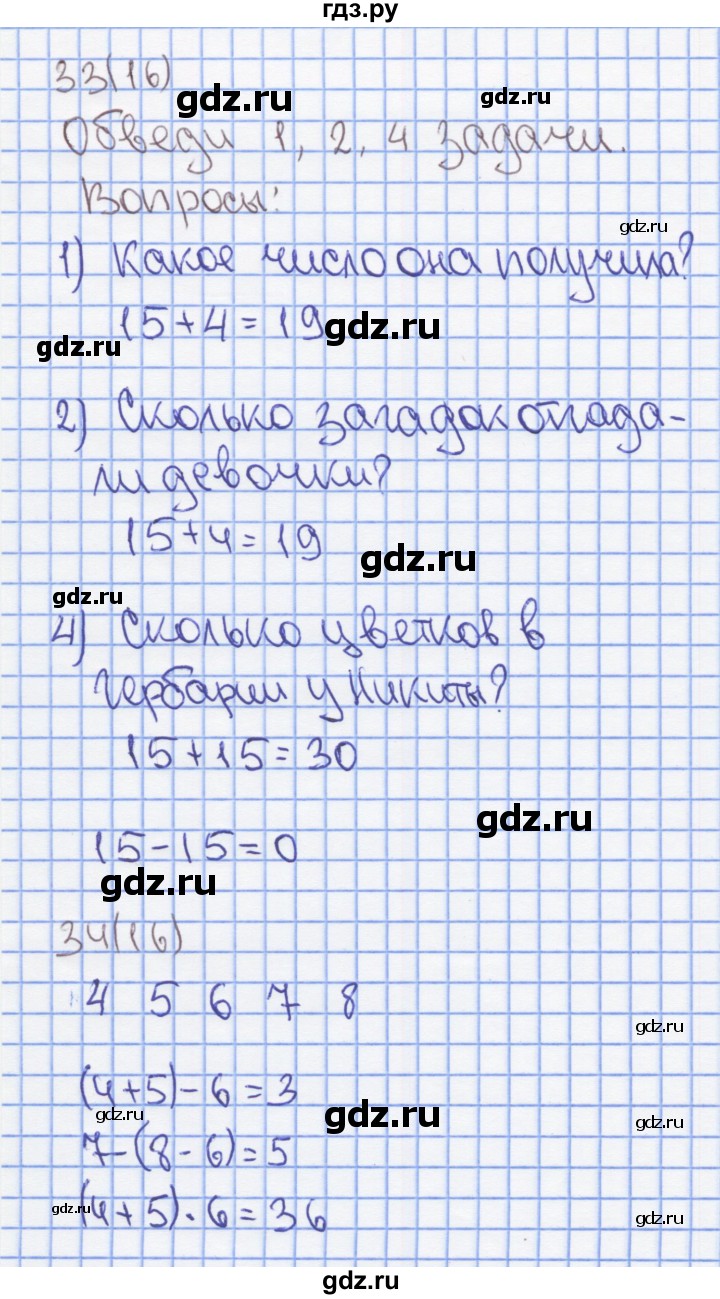 гдз.ру
33(16)
gdz.ru
gdz.ru
Обведи 1, 2, 4 задачи.
Вопросы:
gdz.ru
1) Какое число она получила?
15+4=19
gdz.ru
gdz.ru
2) Сколько загадок отгада-
ли девочки?
15+4=19
gdz.ru
gdz.ru
4) Сколько цветков в
гербарии у Никиты?
15+15=30
gdz.ru
15-15=0
gdz.ru
34(16)
4 5 6 7 8
gdz.ru
(4+5)-6=3
gdz.ru
gdz.ru
gdz.ru
7-(8-6)=5
gdz.ru
(4+5)·6=36
gdz.ru
gdz.ru